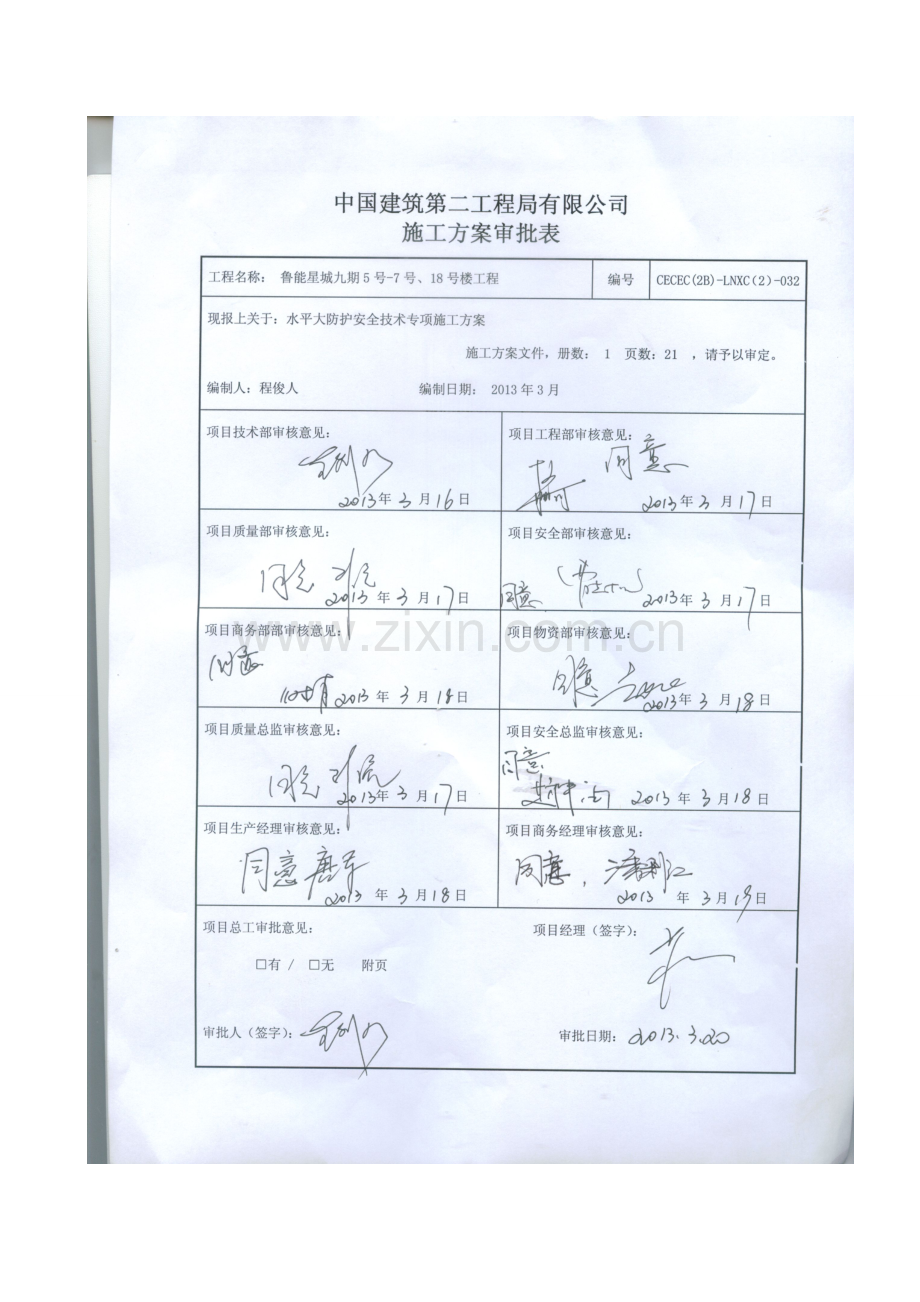 中国建筑第二工程局有限公司
施工方案审批表
工程名称： 鲁能星城九期5号-7号、18号楼工程 编号 CECEC(2B)-LNXC(2)-032
现报上关于：水平大防护安全技术专项施工方案
施工方案文件，册数： 1 页数：21 ，请予以审定。
编制人：程俊人 编制日期： 2013年3月
项目技术部审核意见：
2013年3月16日
项目工程部审核意见：
同意
2013年3月17日
项目质量部审核意见：
同意
2013年3月17日
项目安全部审核意见：
同意
2013年3月17日
项目商务部部审核意见：
同意
2013年3月18日
项目物资部审核意见：
同意
2013年3月18日
www.zixin.com.cn
项目质量总监审核意见：
同意
2013年3月17日
项目安全总监审核意见：
同意
2013年3月18日
项目生产经理审核意见：
同意 唐军
2013年3月18日
项目商务经理审核意见：
同意，
2013年3月19日
项目总工审批意见：
□有 / □无 附页
审批人（签字）：
项目经理（签字）：
审批日期：2013.3.20